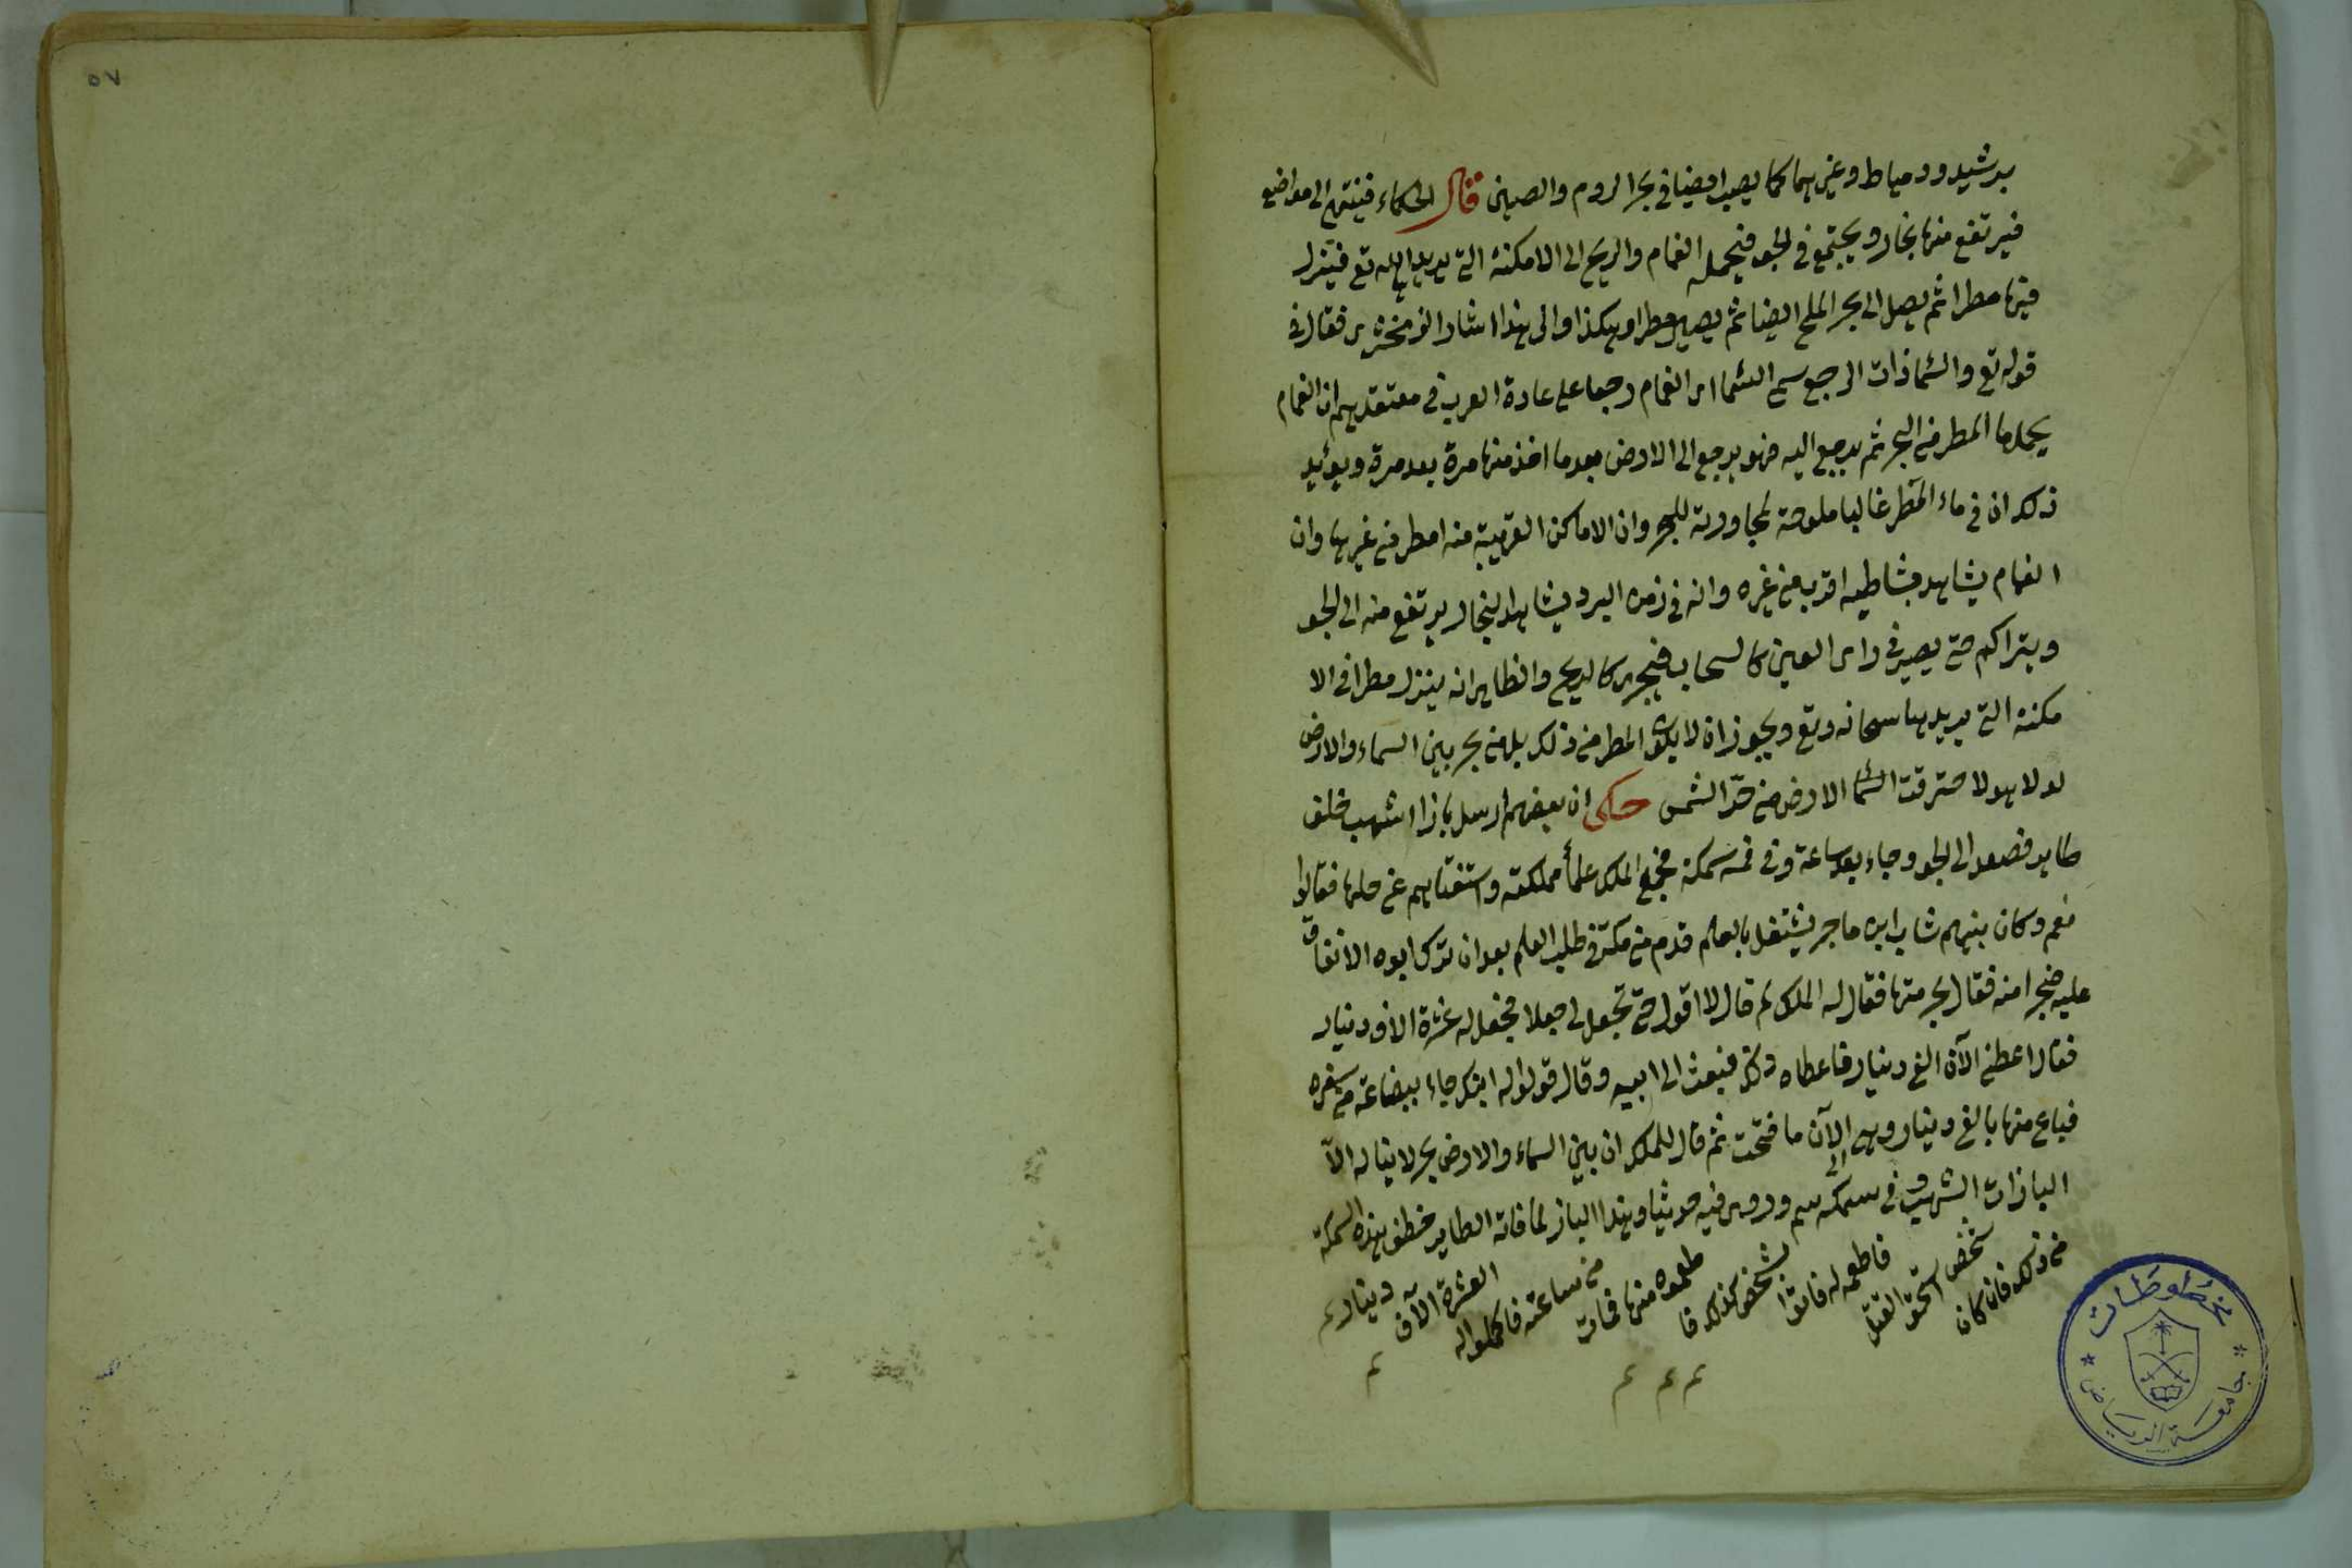 برشيد ودمياط وغيرهما كما يصب ايضا في بحر الروم والصين قال الحكماء فينتهى الى مواضع
فيرتفع منها بخار ويجتمع في الجو فيحمله الغمام والريح الى الامكنة التي يريد الله تع فينزل
فيها مطرا ثم يصل الى بحر الملح ايضا ثم يصير مطرا وهكذا والى هذا اشار الزمخشرى فقال في
قوله تع والسماء ذات الرجع سمى السما اى الغمام رجعا على عادة العرب في معتقدهم ان الغمام
يحمل ماء المطر من البحر ثم يرجع اليه فهو يرجع الى الارض بعد ما اخذ منها مرة بعد مرة ويؤيد
ذلك ان في ماء المطر غالبا ملوحة لمجاورته للبحر وان الاماكن القريبة منه امطر من غيرها وان
الغمام يشاهد بشاطيه اقرب من غيره وانه في زمن البرد يشاهد البخار يرتفع منه الى الجو
ويتراكم حتى يصير في راى العين كالسحاب فيجرى كالريح والظاهر انه ينزل مطرا في الا
مكنة التي يريدها سبحانه وتع ويجوز ان لا يكون المطر من ذلك بل من بحر بين السماء والارض
لولا هو لاحترقت السما الارض من حر الشمس حكى ان بعضهم ارسل بازا اشهب خلف
طاير فصعد الى الجو وجاء بعد ساعة وفى فمه سمكة فجمع الملك علماء مملكته واستفتاهم عن حلها فقالوا
نعم وكان بينهم شاب ابوه تاجر يشتغل بالعلم قدم من مكة في طلب العلم بعد ان ترك ابوه الانفاق
عليه ضجرا منه فقال بحرمتها فقال له الملك لم قال لا اقول حتى تجعل لى جعلا فجعل له عشرة الاف دينار
فقال اعطنى الآن الف دينار فاعطاه ذلك فبعث الى ابيه وقال قولوا له ابنك جاء ببضاعة من سفره
فباع منها بالف دينار وهى الى الآن ما فتحت ثم قال للملك ان بين السماء والارض بحر لا يناله الا
البازات الشهب وفى سمكه سم وروى فيه حديثا وهذا الباز لما فاته الطاير خطف هذه السمكة
من ذلك فان كان شخص استحق القتل فاطعمه له فاتوا بشخص كذلك فا طعموه منها فمات من ساعته فاكملوا له العشرة الآف دينار م
م م م م
مخطوطات
جامعة الرياض